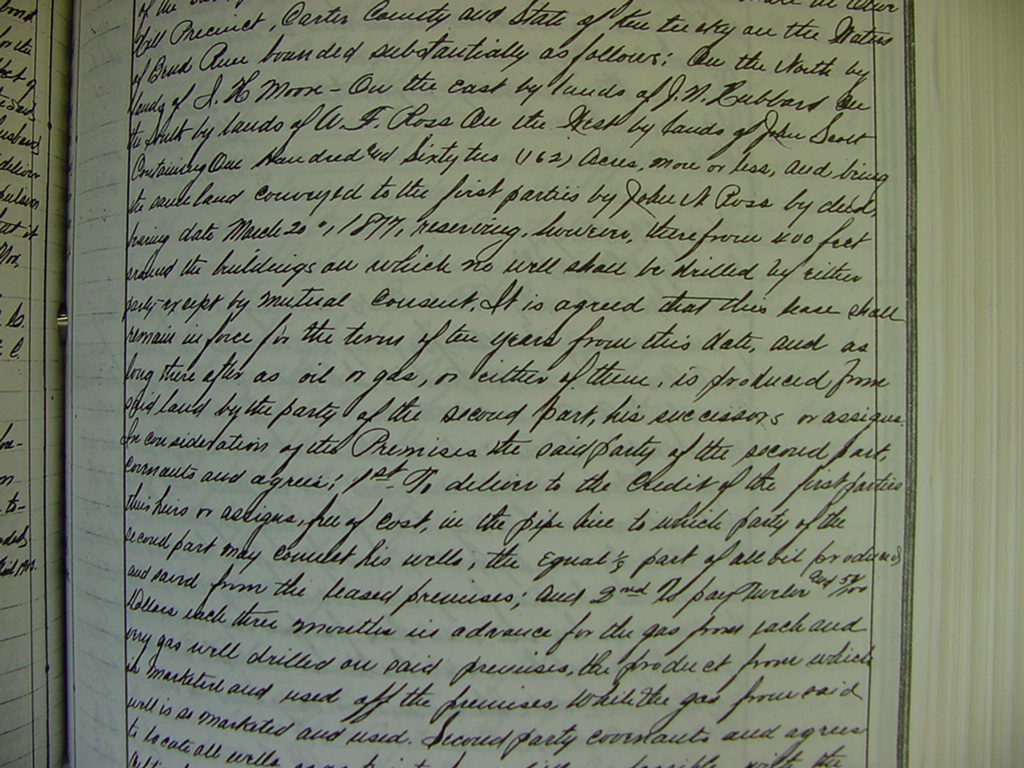 Precinct, Carter County and State of Kentucky on the Waters
of Bend Run bounded substantially as follows: On the North by
lands of J. H Moon - On the east by lands of J. N. Hubbard On
the South by lands of W. F. Ross On the West by lands of John Scott
Containing One Hundred and Sixty two (162) Acres, more or less, and being
the same land conveyed to the first parties by John N Ross by deed,
bearing date March 20", 1877, reserving, however, therefrom 400 feet
around the buildings on which no well shall be drilled by either
party except by mutual consent. It is agreed that this lease shall
remain in force for the term of ten years from this date, and as
long there after as oil or gas, or either of them, is produced from
said land by the party of the second part, his successors or assigns.
In consideration of the Premises the said party of the second part,
covenants and agrees: 1st To deliver to the credit of the first parties
their heirs or assigns, free of cost, in the pipe line to which party of the
second part may connect his wells, the equal 1/8 part of all oil produced
and saved from the leased premises; and 2nd To pay Twelve and 50/100
dollars each three months in advance for the gas from each and
every gas well drilled on said premises, the product from which
is marketed and used off the premises while the gas from said
well is so marketed and used. Second party covenants and agrees
to locate all wells